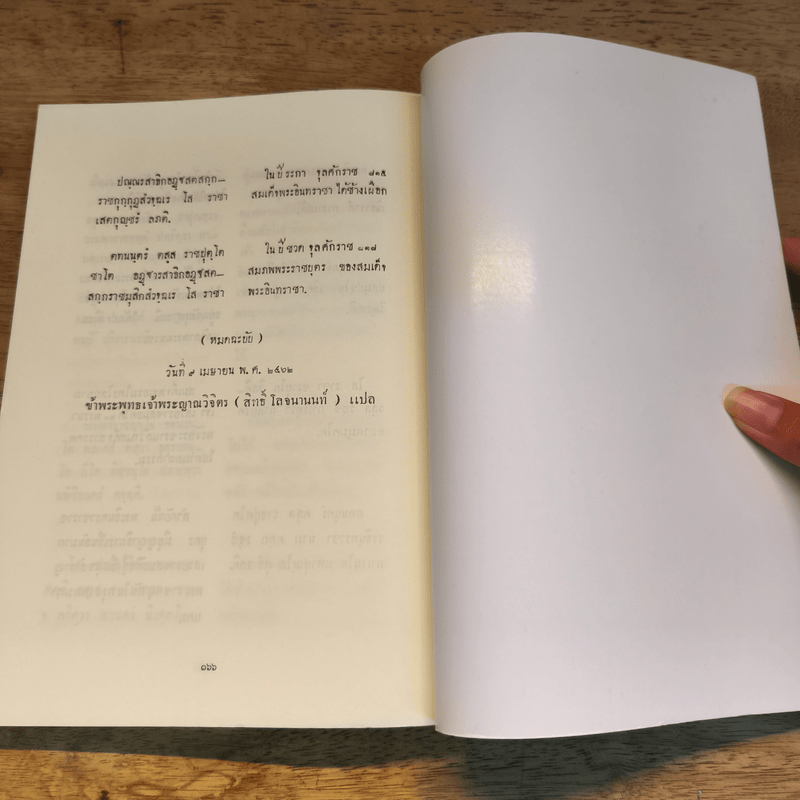 ปณฺณรสาธิกอฏฺฐสตสกฺก–
ราชกุกฺกุฏสํวจฺฉเร โส ราชา
เสตกุญฺชรํ ลภติ.
ในปีระกา จุลศักราช ๘๑๕
สมเด็จพระอินทราชา ได้ช้างเผือก
ตทนนฺตรํ ตสฺส ราชปุตฺโต
ชาโต อฏฺฐารสาธิกอฏฺฐสต–
สกฺกราชมุสิกสํวจฺฉเร โส ราชา
ในปีชวด จุลศักราช ๘๑๗
สมภพพระราชบุตร ของสมเด็จ
พระอินทราชา.
( หมดฉะบับ )
วันที่ ๙ เมษายน พ. ศ. ๒๔๖๒
ข้าพระพุทธเจ้าพระญาณวิจิตร ( สิทธิ์ โลจนานนท์ ) แปล
๑๖๖